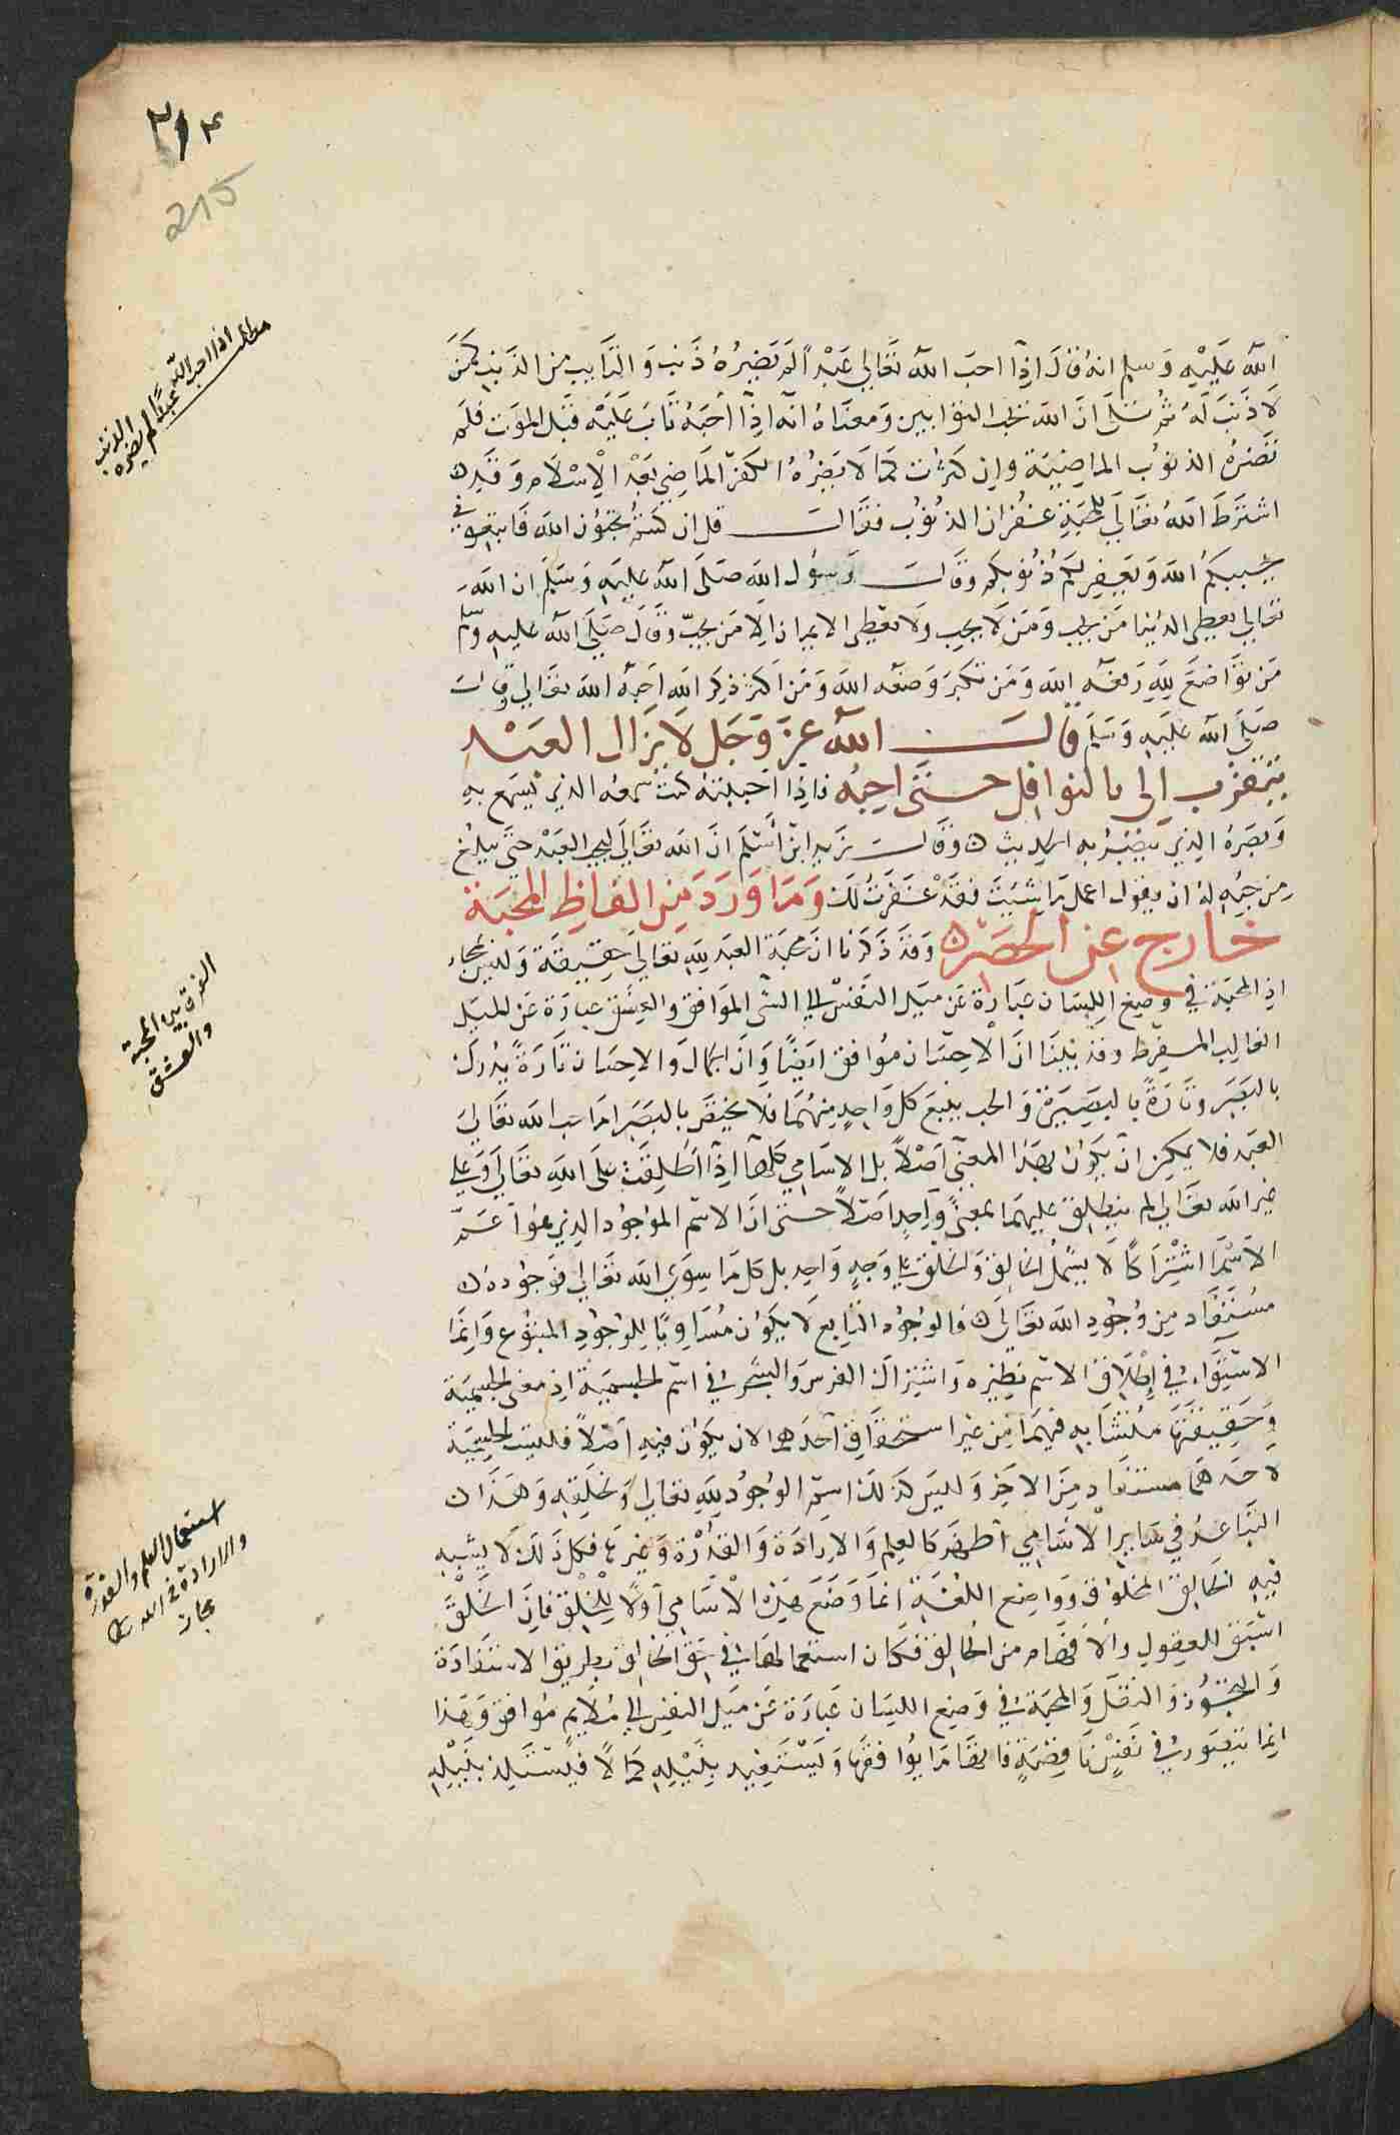 ٢١٤
215
مطلب اذا احب الله عبدًا لم يضره الذنب
الله عَلَيْهِ وَسلم انهُ قالَ اِذَا احبَ اللهُ تعَالي عَبْدًا لَم يَضِرُهُ ذَنب وَ التايب من الذنبِ كَمنَ
لاَ ذَنبَ لَهُ ثُم تلَى انَ اللهَ يحب التوابين وَمعنَاهُ انهُ اِذَا أحَبهُ تابَ عَليْه قبْل الموَت فلَم
تضرهُ الذنوُب الماضِيَة وان كثرُت كَما لاَ يَضِرُهُ الكفرُ المَاضِي بعَدْ الاِسْلاَم وَقَد
اشترَطَ اللهُ تعَالَي للمحَبةِ غفرُان الذنوُب فقال قل ان كنتُم تحبوُن اللهَ فَاتبعوني
يحببكمُ اللهَ وَيَغفِر لكمُ ذُنوُبكم وقال رَسوُل اللهِ صَلىَ اللهُ عليهِ وَسَلمَ ان اللهَ
تعَالي يعطي الدُنيا مَن يحب وَمَن لاَ يحب وَلاَ يعَطِي الايمان اِلا مَن يحبّ وَقَالَ صَليَ اللهُ عليهِ وسلم
مَن توَاضعَ لِلهِ رَفعَه اللهَ وَمَن تكَبرَ وَضَعَه اللهَ وَمَن اَكثرَ ذِكرَ اللهِ اَحبهُ اللهَ تعَالي وقال
صَلىَ اللهُ عَليهِ وَسَلمَ قال اللهُ عزَ وَجَل لاَ يزَال العَبْد
يتقرب إلى بالنوافِل حتى احِبُه فاذِا احببتهُ كنتُ سمعهُ الذي يَسمع بهِ
وَبصَرهُ الِذي يبْصُر به الحديث وقال زيد ابن أسْلمَ انَ اللهَ تعَالَي ليحب العَبدْ حتى يبلغ
مِن حبهِ لهُ ان يقول اعمل مَا شئتَ فقَدْ غَفَرتُ لكَ وَمَا وَرَدَ مِن الفاظِ المحبَة
خارج عن الحصَر وَقدَ ذَكَرنا انَ محبة العَبد لِلهِ تعَاليَ حقِيقَة وَليْسَ بمجاز
اذِ المحبَة في وَضِع اللِسَان عبَارَة عَن مَيل النَفسْ الي الشئ الموَافق والعِشق عبارَة عَن الميَل
الغالِب المفرِط وقد بينَا انَ الاحسَان موُافق ايضًا وَانَ الجمالَ وَالاحِسَان تارَةً يدُرك
بالبَصَر وتَارَةً بالبصَيِرَة وَالحب يتبَع كل وَاحِدٍ مِنهُمَا فلاَ يختصَ بالبَصَر امَا حب اللهِ تعَاليَ
العَبد فلا يمكن انَ يَكوُن بهَذا المعنَى اَصْلاً بل الاسَامِي كلهَا اذِاَ اُطلِقَت علَى اللهِ تعَاليَ وَعَلي
غير الله تعَالي لم ينطَلِق عليهمَا بمعنيً وَاحِدٍ اصْلاً حتى انَ الاسْم الموَجوُد الذي هوَ اعَمّ
الاَسْمَا اشتِراَكًا لاَ يشمَل الخالِق وَالخلق علي وَجهٍ وَاحِد بل كل مَا سِوَي الله تعَالي فوَجوُده
مسُتفَاد مِن وُجُودِ اللهَ تعَالَي فالوُجوُد التابع لاَ يكَوُن مُسَاوِيًا لِلوُجوُدِ المتبوُع وَانمَا
الاستِوَاءُ في اِطلاَق الاسم نظيره اشتراك الفرسَ وَالشجَر في اسْم الجسميَة اذِ معنى الجسميَة
وَحَقِيقَتهَا مُتشَابه فيهمَا مِن غير استحقَاق احَدهما لان يكَوُن فيهِ اَصْلاً فليست الجسميَة
لاحدهمَا مستفَاد مِنَ الاخِر وَليسَ كذَلكَ اسمَ الوُجوُد لِلهِ تعَالي وَلخلقِه وَهَذا
التبَاعُد في سَايِر الاْسَامِي أظهَر كالعِلم وَالاِرادَة وَالقدُرْة وَغيرهَا فكل ذَلكَ لاَ يشبِه
فيهِ الخالِق المخلوُق وَوَاضِع اللغَة انمَا وَضَعَ هذِه الاْسَامِي اَوّلاً لِلْخلْق فَاِنَ الخَلْقَ
اسْبَق للعقوُل وَالاَفهَام من الخالِق فكَان استعمالهَا في حَق الخالِق بطَرِيق الاستعَارَة
وَالتجوُز وَالنقَل وَالمحبَة في وَضِع اللِسَان عبَارَة عَن مَيل النفِس الي مُلاَيمٍ مُوافِق وَهذا
انمِا يتصَور في نَفسٍ ناقِصَة فاتهَا مَا يوُافقهَا وَتَستَفيد بِنَيْلهِ كمالاً فتستَلِذ بنَيلِهِ
الفرق بين المحبة
والعشق
استعمال العلم والقدرة
والارادة في الله
مجاز